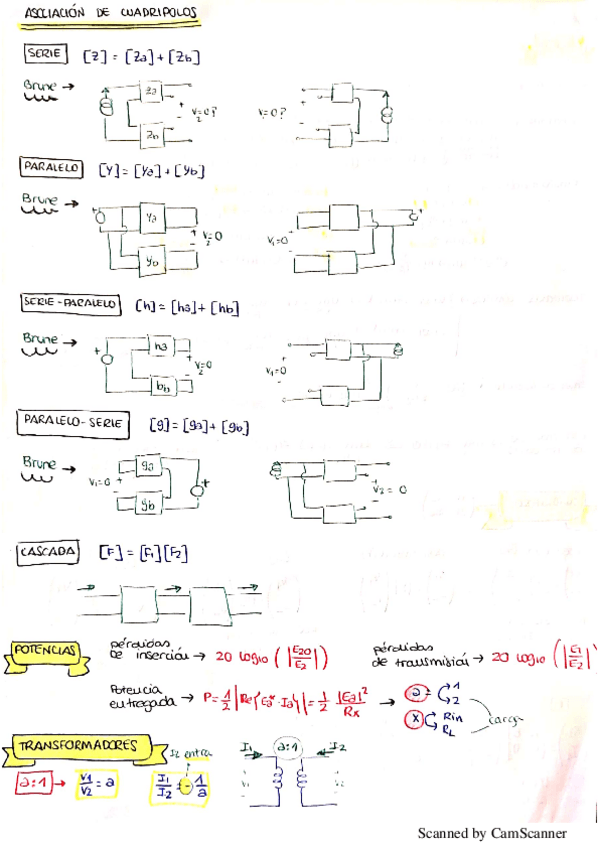 ASOCIACIÓN DE CUADRIPOLOS
SERIE [Z] = [Za] + [Zb]
Brune →
Za
Zb
+
V2=0?
-
V1=0?
+
-
PARALELO [Y] = [Ya] + [Yb]
Brune →
+
Ya
Yb
+
V2=0
-
V1=0
+
-
+
SERIE-PARALELO [h] = [ha] + [hb]
Brune →
+
ha
hb
+
V2=0
-
V1=0
+
-
PARALELO-SERIE [g] = [ga] + [gb]
Brune →
V1=0
-
+
ga
gb
+
+
V2=0
-
CASCADA [F] = [F1][F2]
POTENCIAS
pérdidas de inserción → 20 log10 (|E20/E2|)
pérdidas de transmisión → 20 log10 (|E1/E2|)
Potencia entregada → P = 1/2 |Re{Ea* · Ia}| = 1/2 |Ea|²/Rx →
a = 1
2
x Rin
RL
carga
TRANSFORMADORES
I2 entra
a:1 → V1/V2 = a I1/I2 = -1/a
I1 a:1 I2
+
V1
-
+
V2
-
Scanned by CamScanner